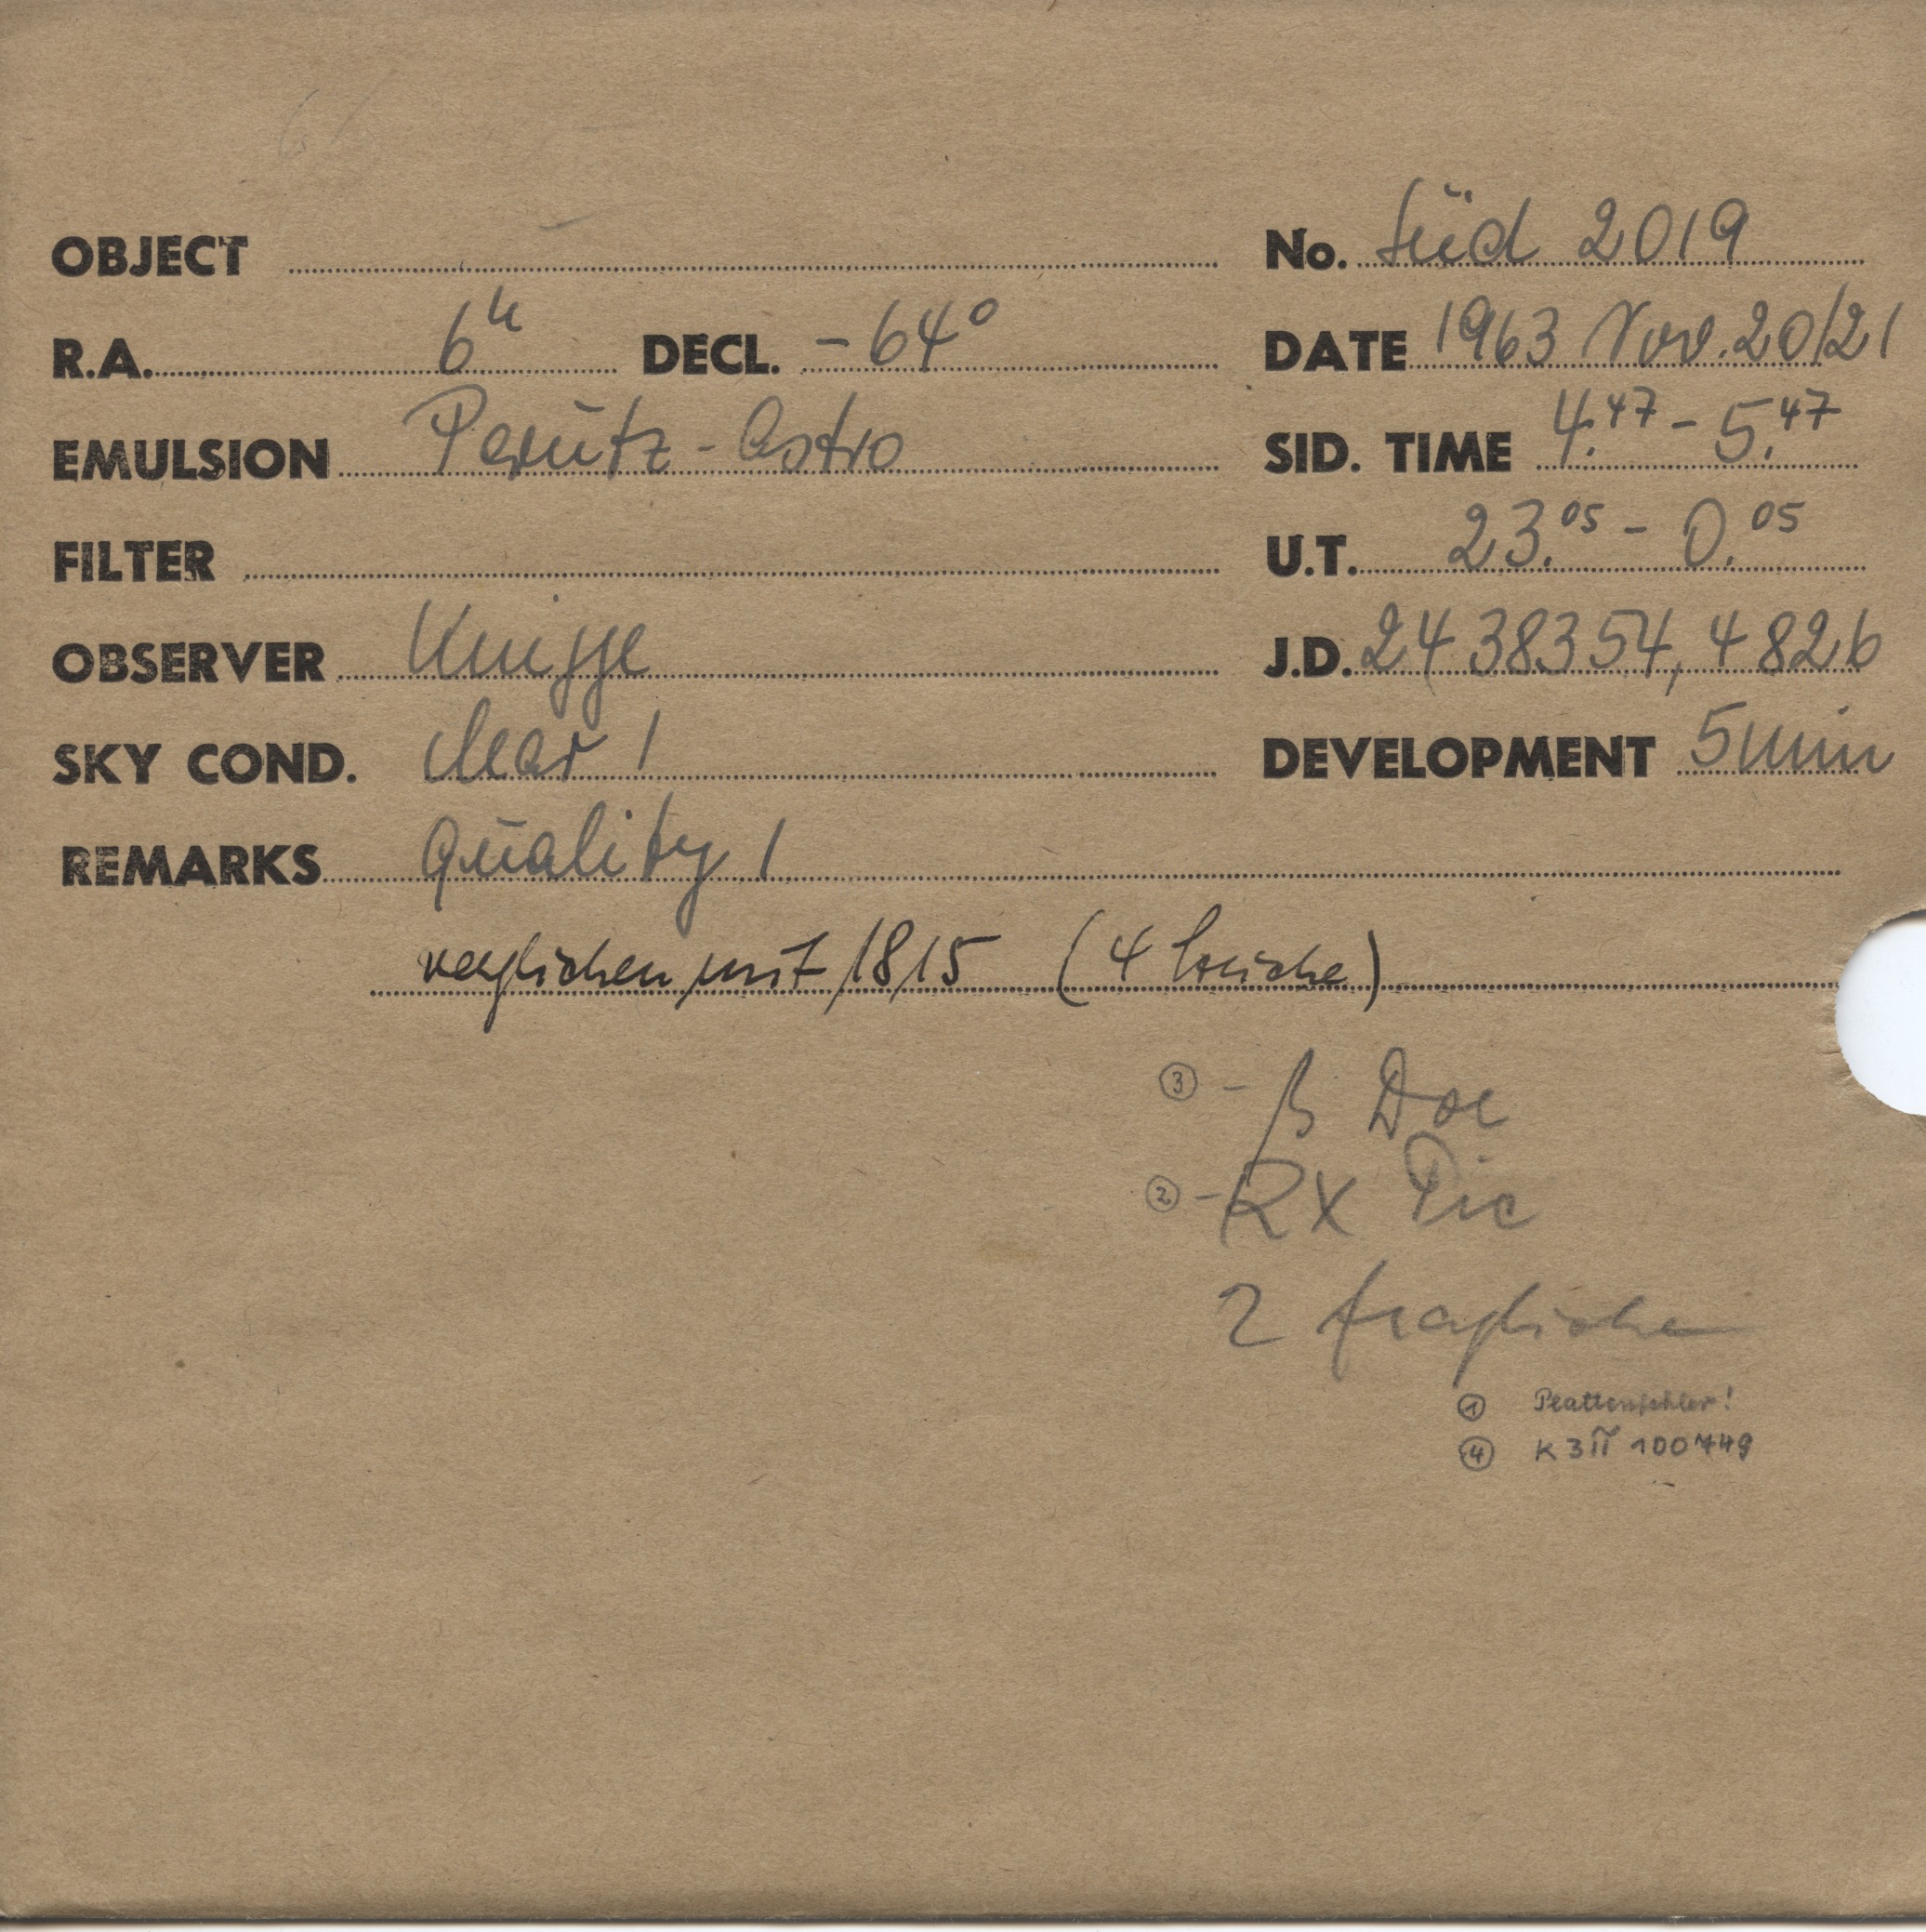 OBJECT No. Süd 2019
R.A. 6h DECL. -64° DATE 1963 Nov. 20/21
EMULSION Perutz-Astro SID. TIME 4.47 - 5.47
FILTER U.T. 23.05 - 0.05
OBSERVER Knigge J.D. 2438354,4826
SKY COND. clear 1 DEVELOPMENT 5 min
REMARKS Quality 1
verglichen mit 1815 (4 Striche)
③ - β Dor
② - RX Pic
2 fragliche
① Plattenfehler!
④ K3π 100749